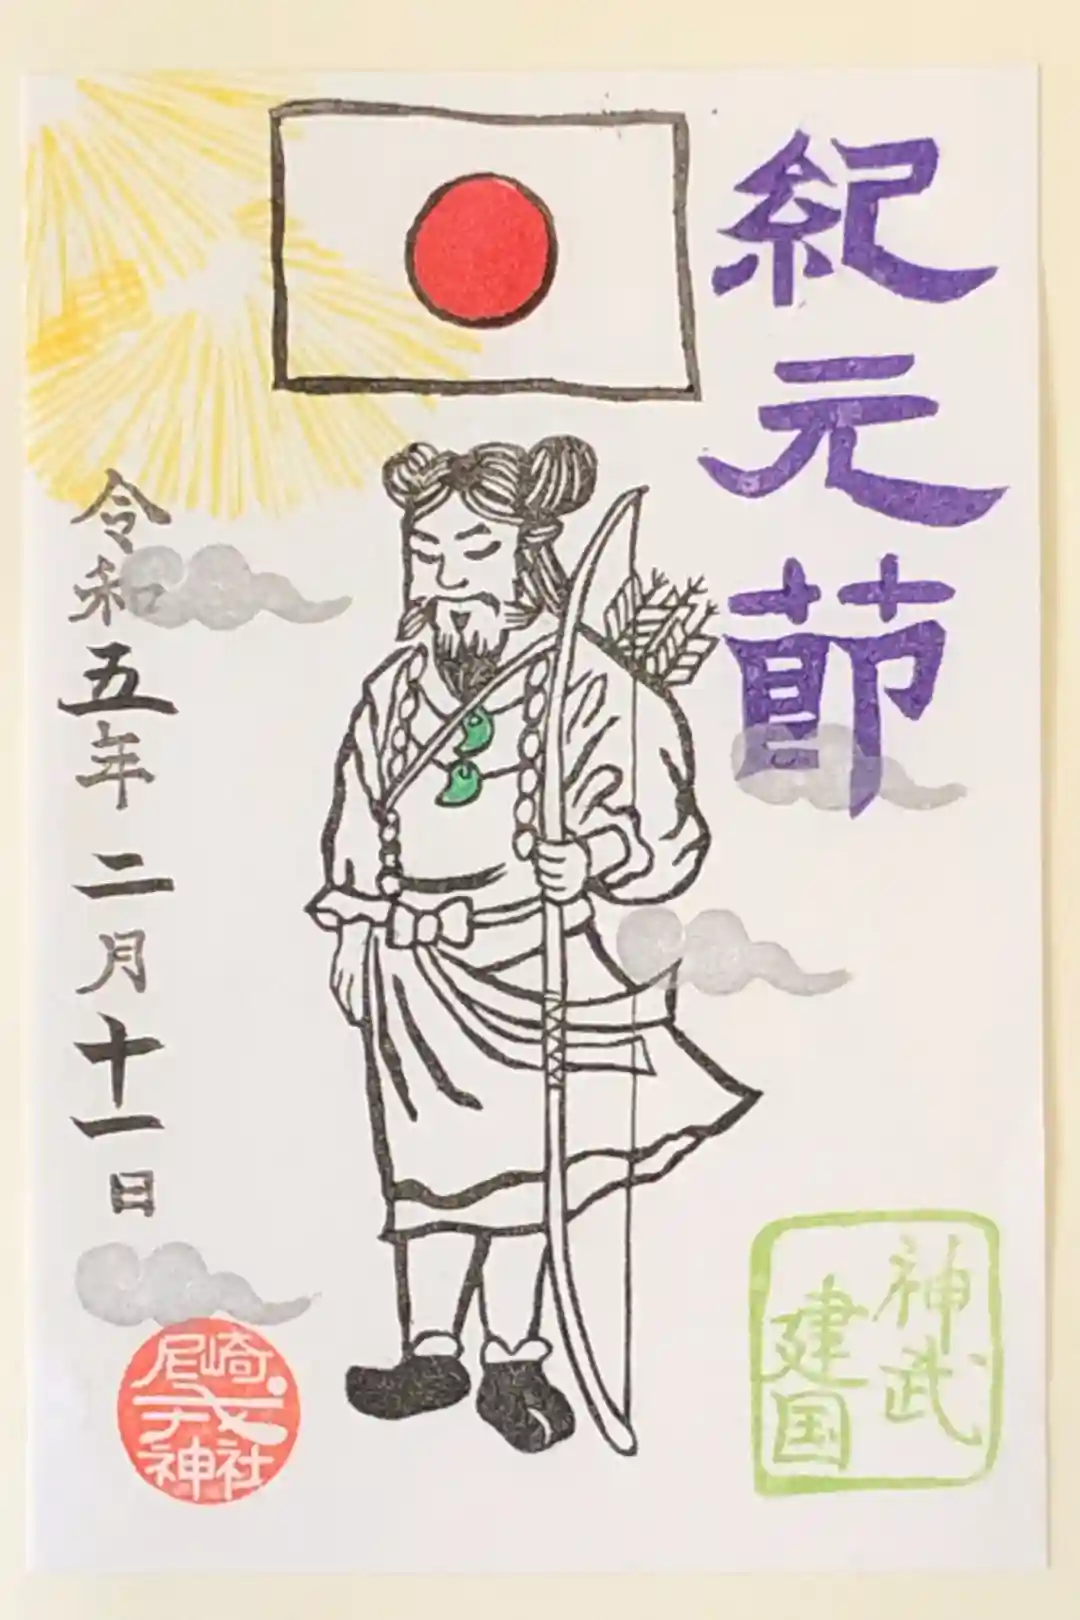 紀元節
令和五年二月十一日
神武
建国
尼崎
戎
神社